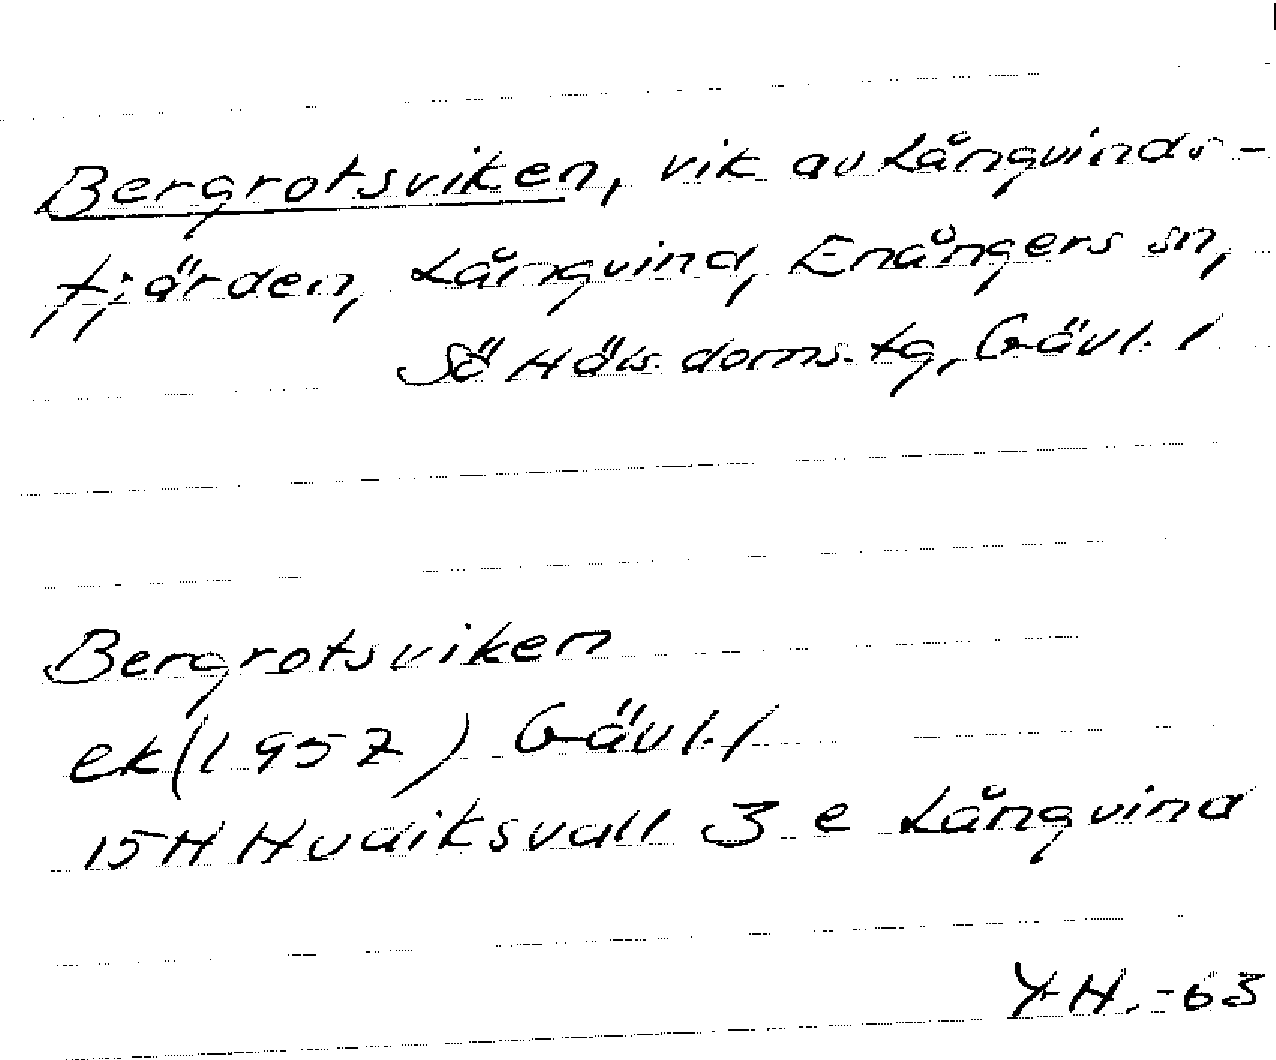 Bergrotsviken, vik av Långvinds-
fjärden, Långvind, Enångers sn,
Sö Häls. doms. tg, Gävl. l
Bergrotsviken
ek (1957) Gävl. l
15H Hudiksvall 3 e Långvind
Y H. -63